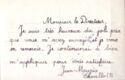 Monsieur le Directeur,
Je suis très heureux du joli prix
que vous m'avez envoyé et vous en
remercie. Je continuerai à bien
m'appliquer pour vous satisfaire.
Jean